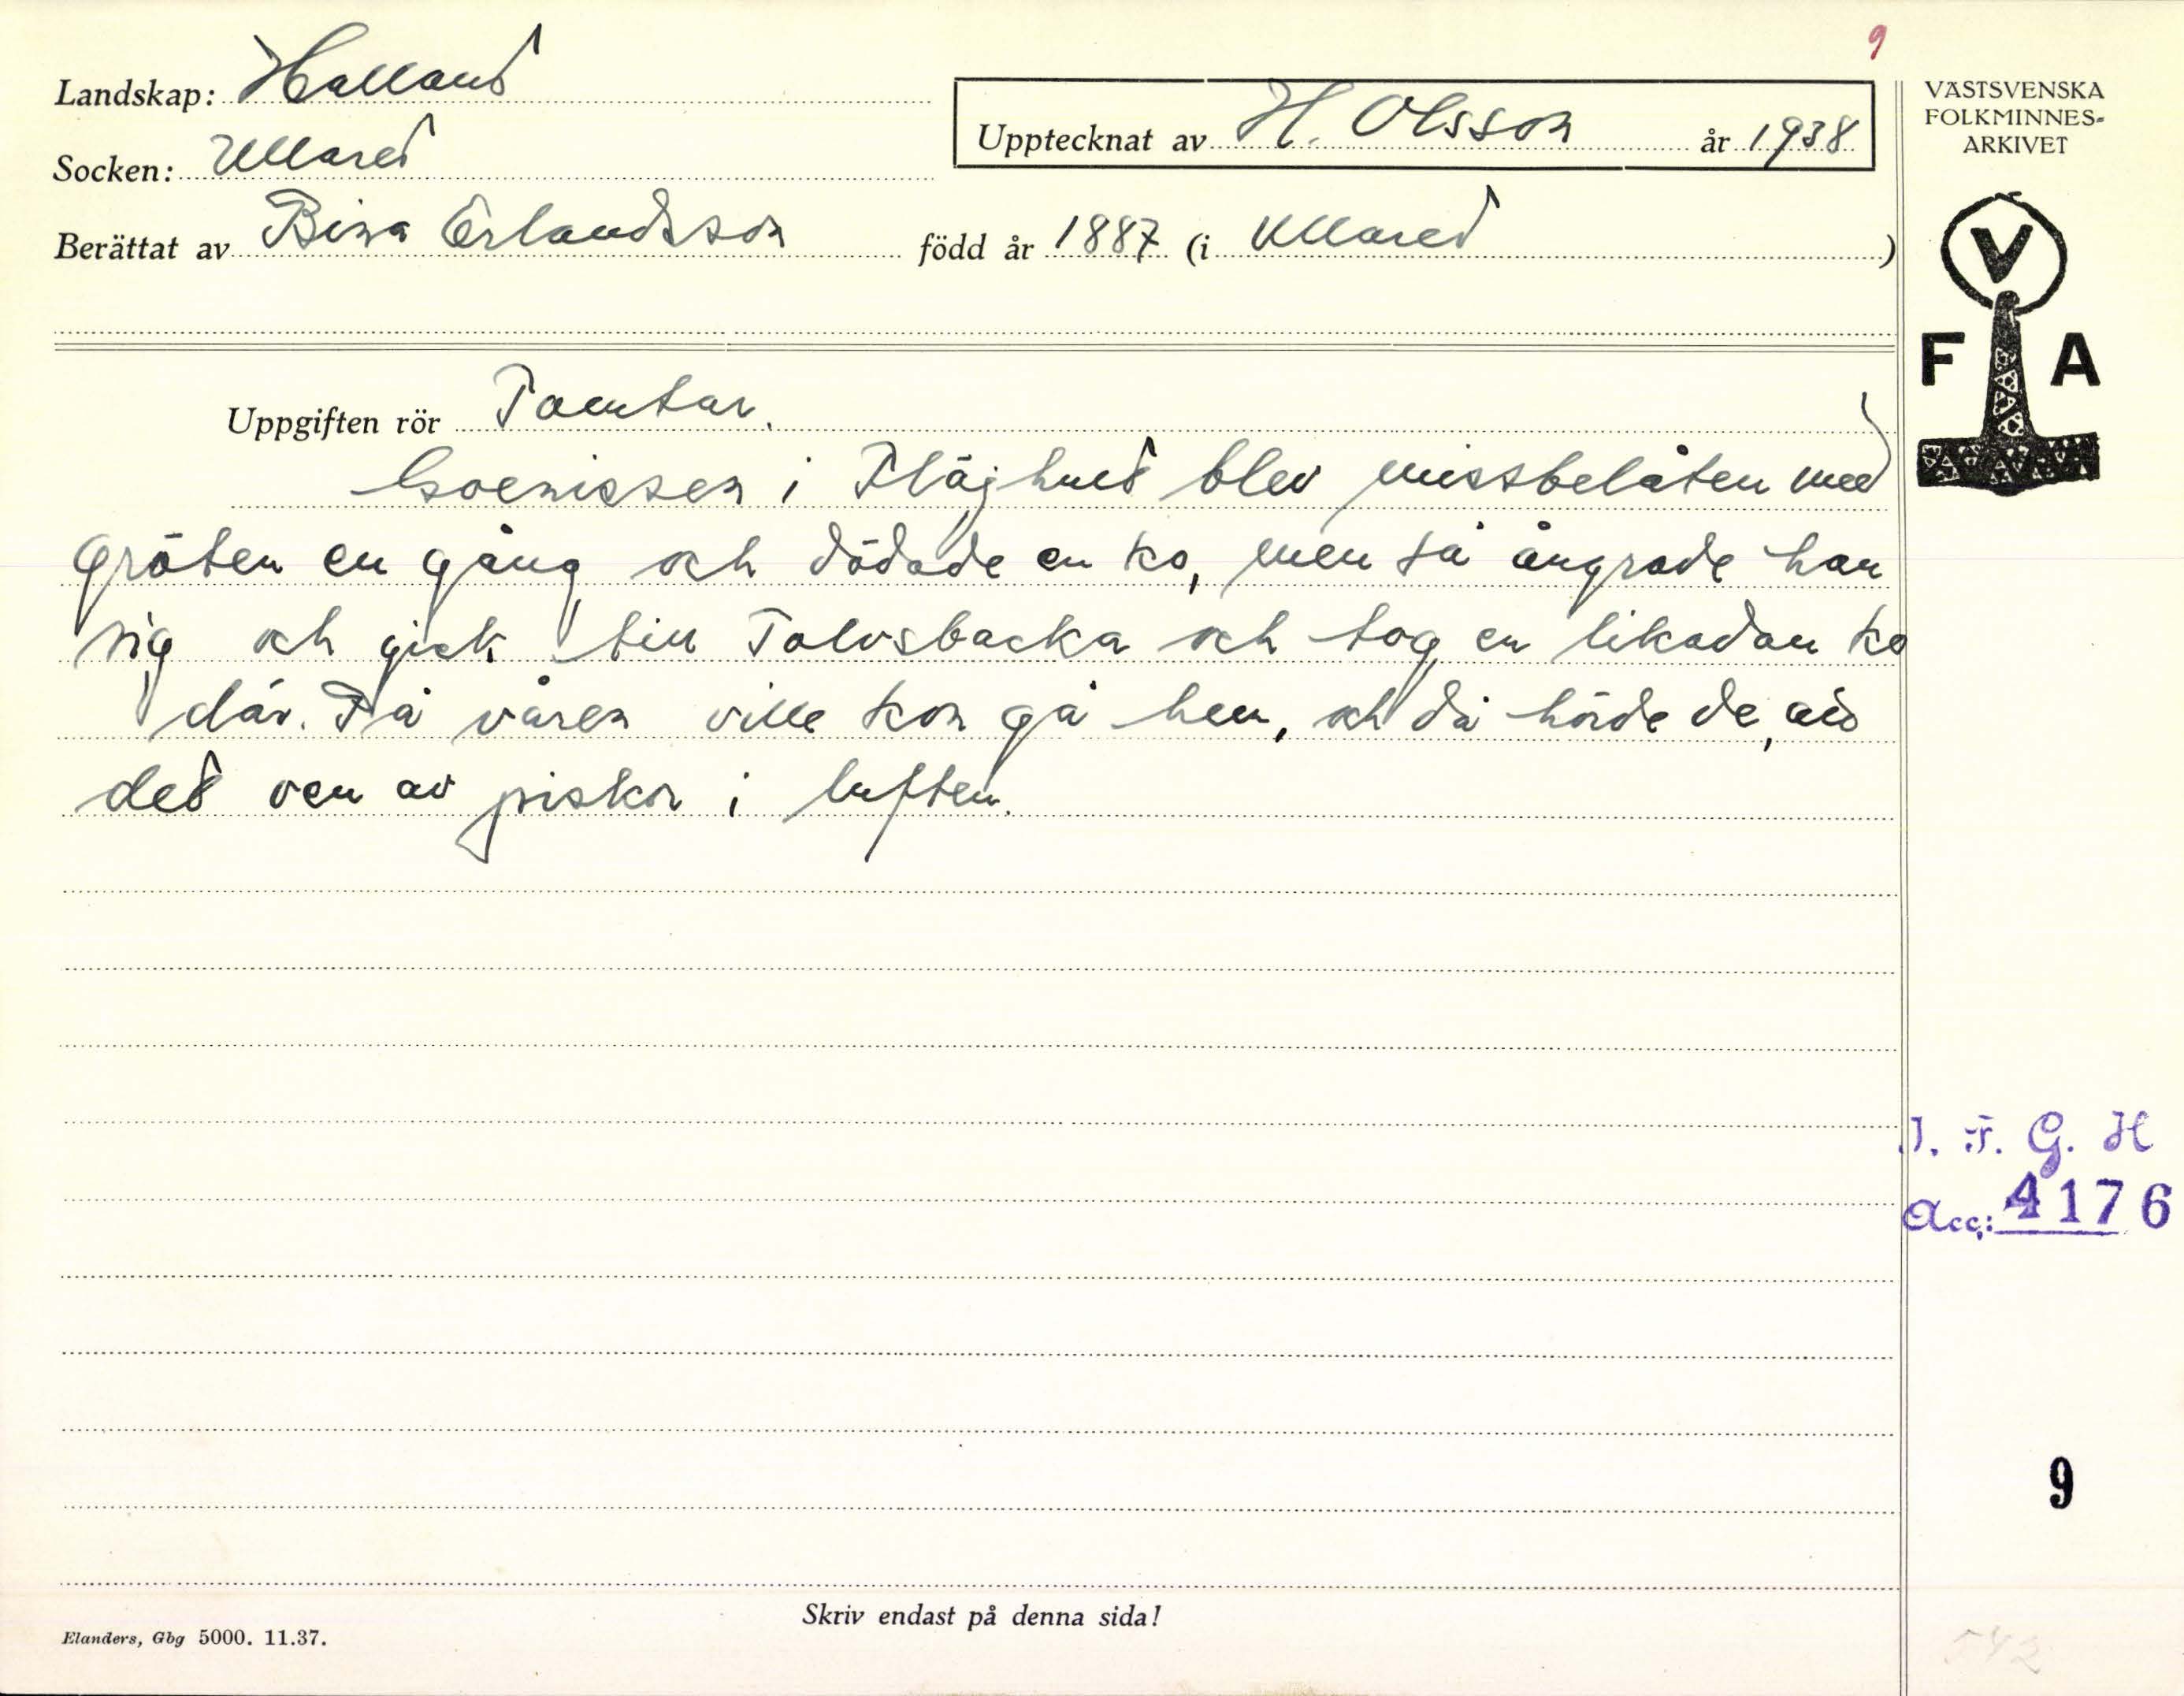 9
Landskap: Halland
Socken: Ullared
Upptecknat av H. Olsson år 1938
Berättat av Bina Erlandsson född år 1887 (i Ullared)
VÄSTSVENSKA
FOLKMINNES-
ARKIVET
V
F A
Uppgiften rör Tomtar.
Goenissen i Fläjhult blev missbelåten med
gröten en gång och dödade en ko, men så ångrade han
sig och gick till Tolvsbacka och tog en likadan ko
där. På våren ville kon gå hem, och då hörde de, att
det ven av piskor i luften.
I. F. G. H
Acc: 4176
9
Skriv endast på denna sida!
Elanders, Gbg 5000. 11.37.
542